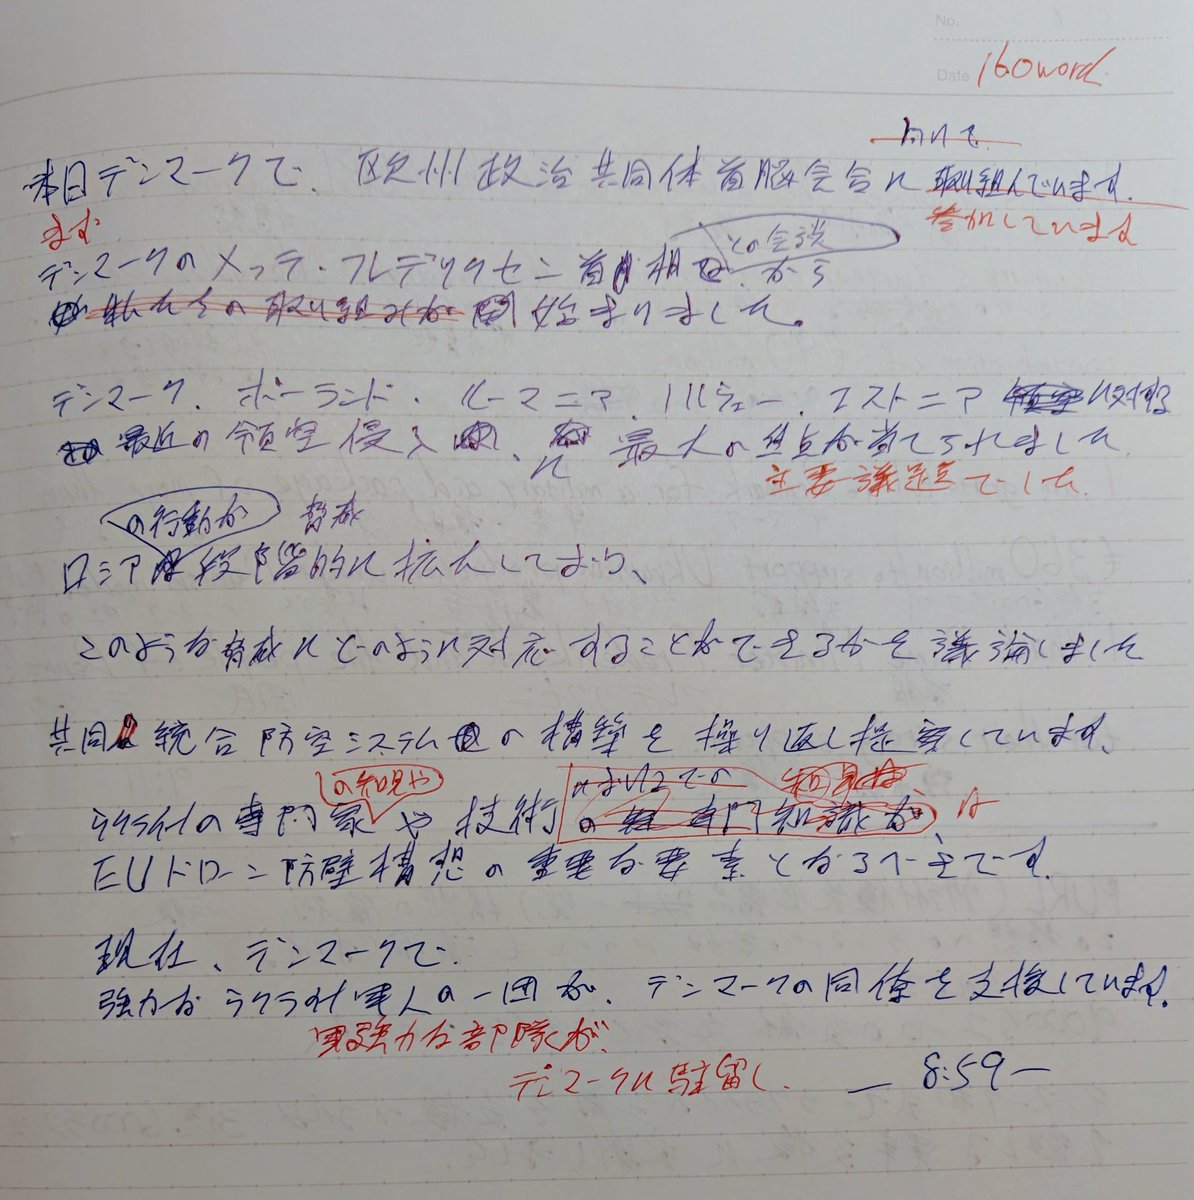 No.
Date 160word
向けて
本日デンマークで、欧州政治共同体首脳会合に取り組んでいます。
まず 参加しています
との会談
デンマークのメッテ・フレデリクセン首相から
取り組みが開始まりました。
デンマーク、ポーランド、ルーマニア、ノルウェー、エストニアに対する
最近の領空侵入に、最大の焦点が当てられました
主要議題でした
の行動が 脅威
ロシア 段階的に拡大しており、
このような脅威にどのように対応することができるかを議論しました
共同統合防空システムの構築を繰り返し提案しています。
の知見や においての 知見は
ウクライナの専門家や技術の専門知識が は
EUドローン防壁構想の重要な要素となるべきです。
現在、デンマークで、
強力なウクライナ軍人の一団が、デンマークの同僚を支援しています。
強力な部隊が、
デンマークに駐留し、 — 8:59 —